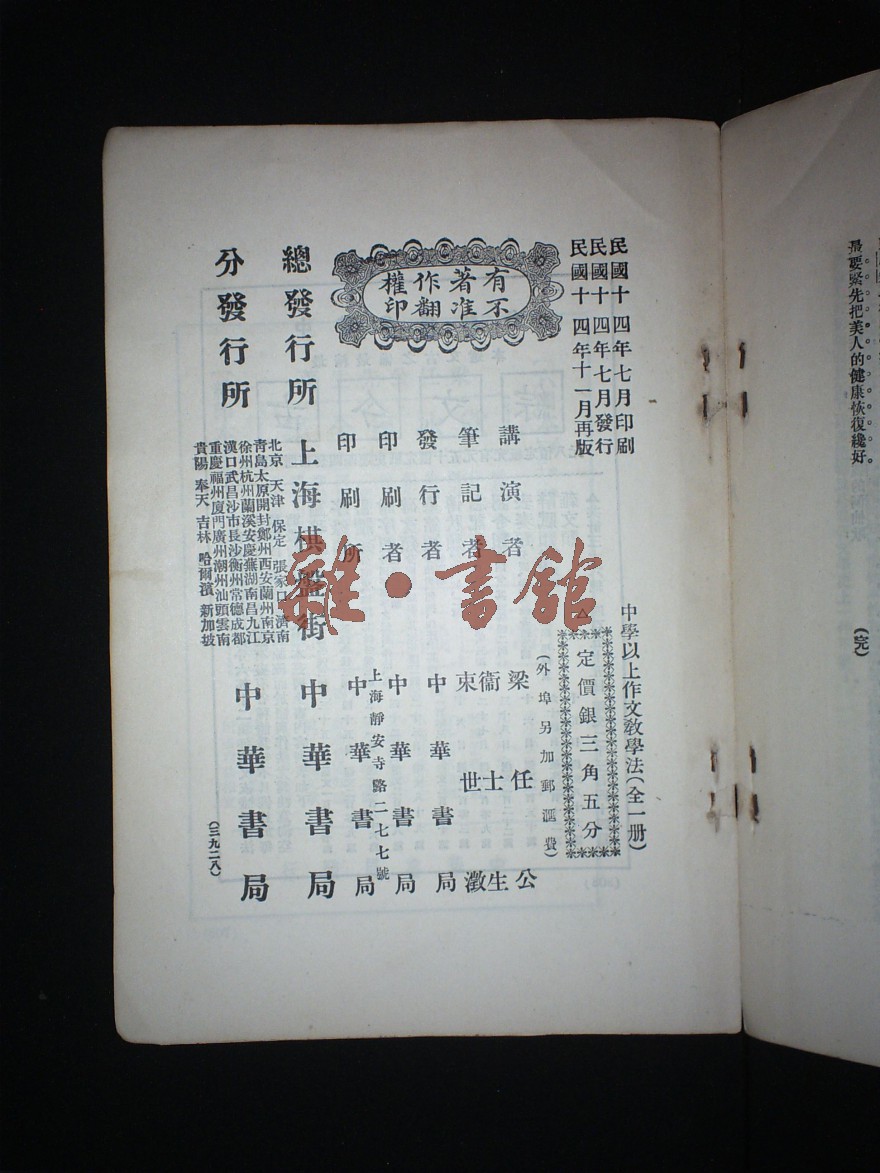 最要緊先把美人的健康恢復纔好。
(完)
民國十四年七月印刷
民國十四年七月發行
民國十四年十一月再版
有著作權
不准翻印
中學以上作文教學法(全一册)
定價銀三角五分
(外埠另加郵滙費)
講演者 梁任公
筆記者 衞士生
束世澂
發行者 中華書局
印刷者 中華書局
上海靜安寺路二七七號
印刷所 中華書局
總發行所 上海棋盤街 中華書局
分發行所 中華書局
北京 天津 保定 張家口 濟南
青島太原開封鄭州西安蘭州南京
徐州杭州蘭溪安慶蕪湖南昌九江
漢口武昌沙市長沙衡州常德成都
重慶福州廈門廣州潮州汕頭雲南
貴陽 奉天 吉林 哈爾濱 新加坡
(三九二八)
雜·書館